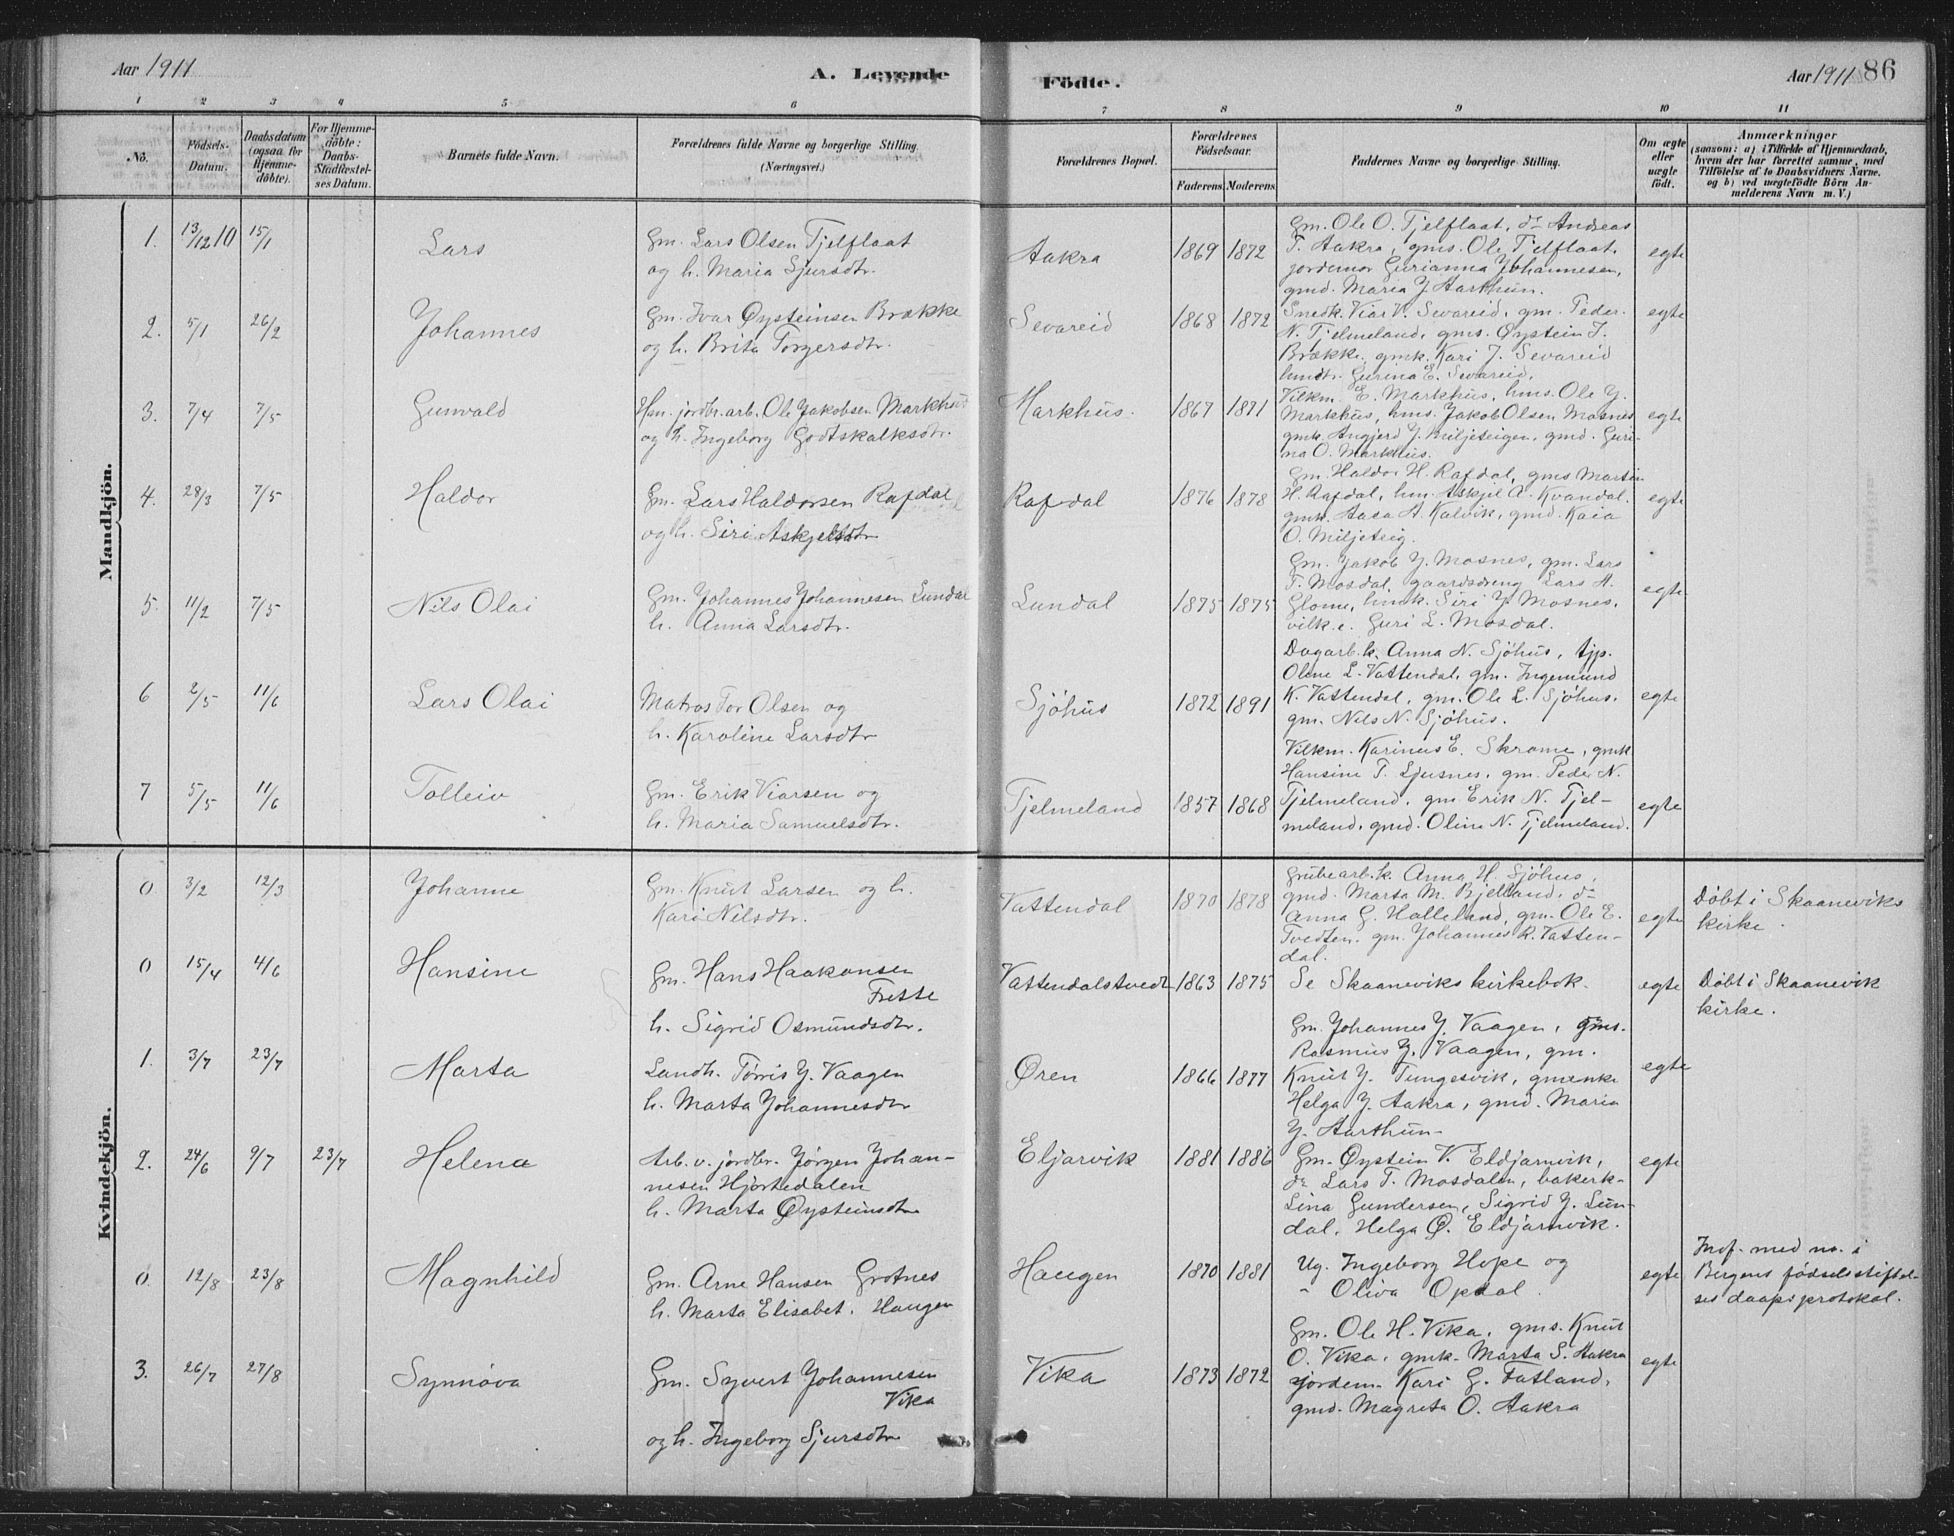 Aar 1911
A. Levende
Födte.
Aar 1911 86
1 2 3 4 5 6 7 8 9 10 11
No.
Födsels-
Datum.
Daabsdatum
(ogsaa for
Hjemme-
döbte).
For Hjemme-
döbte:
Daabs-
Stadfæstel-
ses Datum.
Barnets fulde Navn.
Forældrenes fulde Navne og borgerlige Stilling.
(Næringsvei.)
Forældrenes Bopæl.
Forældrenes
Födselsaar.
Faderens. Moderens.
Faddernes Navne og borgerlige Stilling.
Om ægte
eller
uægte
født.
Anmærkninger
(saasom: a) i Tilfælde af Hjemmedaab,
hvem der har forrettet samme, med
Tilföielse af to Daabsvidners Navne,
og b) ved uægtefödte Börn An-
melderens Navn m. V.)
Mandkjön.
1. 13/12 10 15/1 Lars
Gm. Lars Olsen Tjelflaat
og h. Maria Sjursdtr.
Aakra 1869 1872
Gm. Ole O. Tjelflaat, do Andreas
T. Aakra, gms. Ole Tjelflaat,
jordemor Gurianna Johannesen,
gmd. Maria J. Aarthun.
egte
2. 5/1 26/2 Johannes
Gm. Ivar Øysteinsen Brække
og h. Brita Torgersdtr.
Sevareid 1868 1872
Snedk. Viar V. Sevareid, gm. Peder
N. Tjelmeland, gms. Øystein I.
Brække, gmk. Kari J. Sevareid
Gurina E. Sevareid.
egte
3. 7/4 7/5 Gunvald
Hm. jordbr. arb. Ole Jakobsen Markhus
og h. Ingeborg Godtskalksdtr.
Markhus. 1867 1871
Vilkm. E. Markhus, hms. Ole J.
Markhus, hms. Jakob Olsen Mosnes
gmk. Angjerd J. Miljeteigen, gmd. Guri-
na O. Markhus.
egte
4. 28/3 7/5 Haldor
Gm. Lars Haldorsen Rafdal
og h. Siri Askjelsdtr
Rafdal 1876 1878
Gm. Haldor H. Rafdal, gms Martin
H. Rafdal, hm. Askjel A. Kvandal.
gmk. Aasa A. Kalvik, gmd. Kaia
O. Miljeteig.
egte
5. 11/2 7/5 Nils Olai
Gm. Johannes Johannesen Lundal
h. Anna Larsdtr.
Lundal 1875 1875
Gm. Jakob J. Mosnes, gm. Lars
T. Mosdal, gaardsdreng Lars A.
Glome, hmk. Siri J. Mosnes,
vilk. e. Guri L. Mosdal.
egte
6 2/5 11/6 Lars Olai
Matros Tor Olsen og
h. Karoline Larsdtr
Sjöhus 1872 1891
Dagarb. k. Anna N. Sjöhus, tjp.
Oline L. Vattendal, gm. Ingemund
K. Vattendal, gm. Ole L. Sjöhus.
gm. Nils N. Sjöhus.
egte
7 5/5 11/6 Tolleiv
Gm. Erik Viarsen og
h. Maria Samuelsdtr.
Tjelmeland 1857 1868
Vilkm. Karinus E. Skrome, gmk
Hansine T. Ljusnes, gm. Peder N.
Tjelmeland, gm. Erik N. Tjel-
meland, gmd. Oline N. Tjelmeland.
egte
Kvindekjön.
0 3/2 12/3 Johanne
Gm. Knut Larsen og h.
Kari Nilsdtr.
Vattendal 1870 1878
Grubearb. k. Anna H. Sjöhus,
gmd. Marta M. Bjelland, do
Anna G. Halleland, gm. Ole E.
Tvedten. gm. Johannes K. Vatten-
dal.
egte
Döbt i Skaaneviks
kirke.
0 15/4 4/6 Hansine
Gm. Hans Haakonsen
Frette
h. Sigrid Osmundsdtr.
Vattendalstvedt 1863 1875
Se Skaaneviks kirkebok.
egte
Döbt i Skaanevik
kirke.
1. 3/7 23/7 Marta
Landh. Tørris J. Vaagen
h. Marta Johannesdtr
Øren 1866 1877
Gm. Johannes J. Vaagen, gms.
Rasmus J. Vaagen, gm.
Knut J. Tungesvik, gmenke
Helga J. Aakra, gmd. Maria
J. Aarthun-
egte
2. 24/6 9/7 23/7 Helena
Arb. v. jordbr. Jörgen Johan-
nesen Hjortedalen
h. Marta Øysteinsdtr
Eljarvik 1881 1886
Gm. Øystein V. Eldjarnvik,
do Lars T. Mosdalen, bakerk-
Lina Gundersen, Sigrid J. Lun-
dal, Helga Ø. Eldjarnvik.
egte
0. 12/8 23/8 Magnhild
Gm. Arne Hansen Grotnes
h. Marta Elisabet. Haugen
Haugen 1870 1881
Ug. Ingeborg Hope og
" Oliva Opdal.
egte
Inf. med no. i
Bergens födselsstiftel-
ses daapsprotokol.
3. 26/7 27/8 Synnöva
Gm. Syvert Johannesen
Vika
og h. Ingeborg Sjursdtr
Vika 1873 1872
Gm. Ole H. Vika, gms. Knut
O. Vika, gmk. Marta S. Aakra
jordem. Kari G. Fatland,
gmd. Magreta O. Aakra
egte